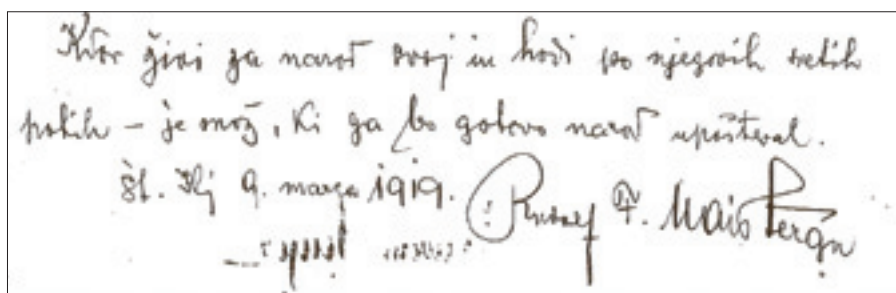 Kdor živi za narod svoj in hodi po njegovih svetih
potih – je mož, ki ga bo gotovo narod upošteval.
Št. Ilj 9. marca 1919. Rudolf F. Mais